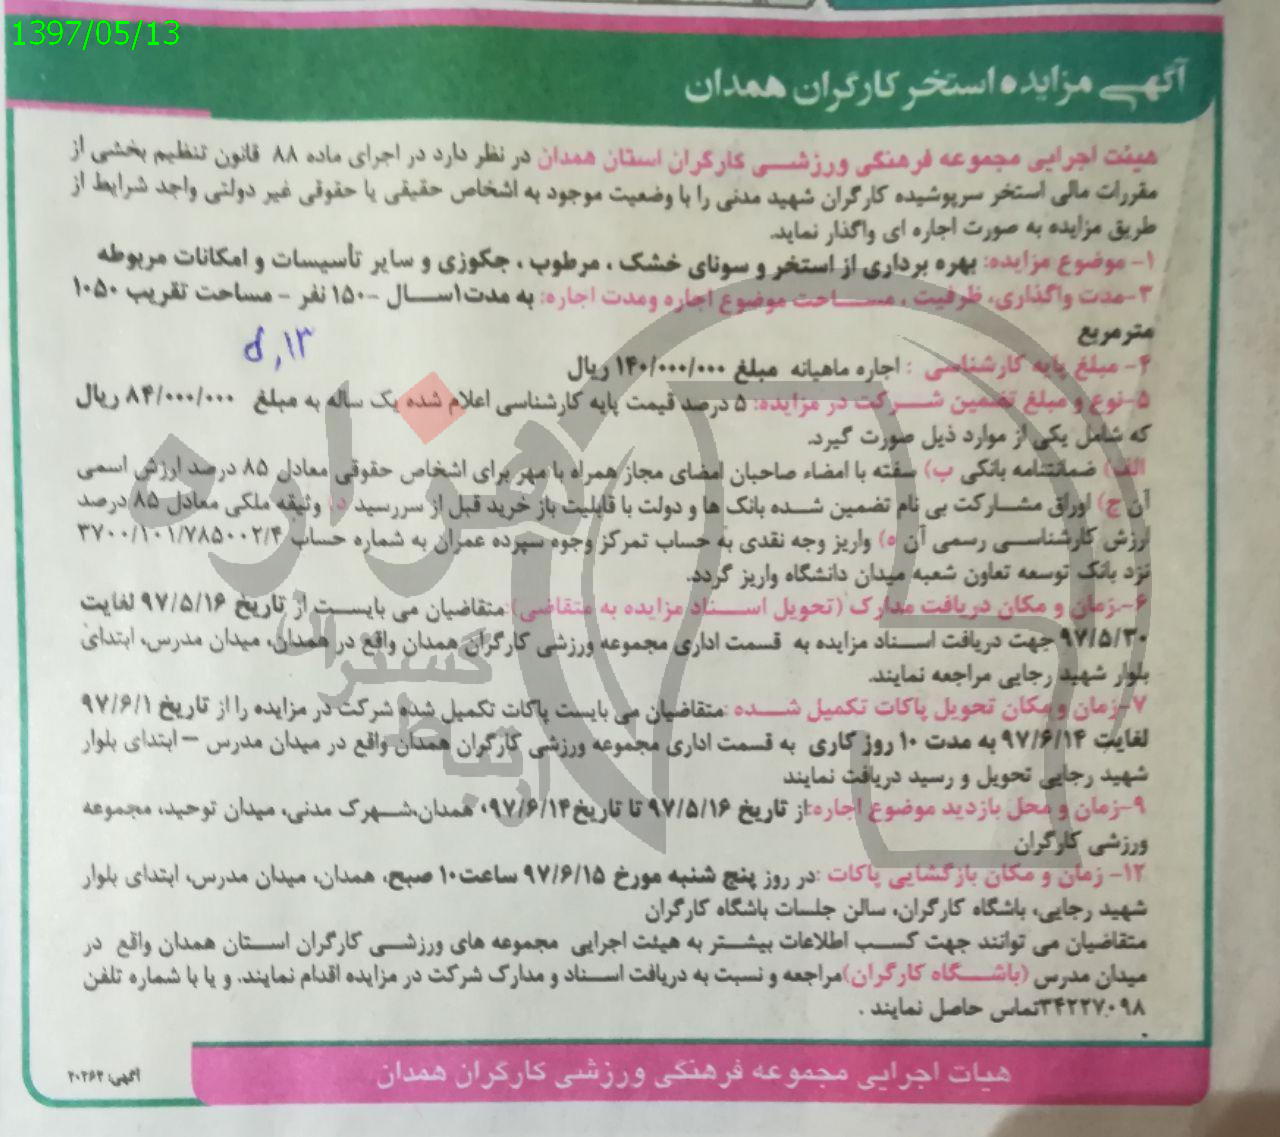 1397/05/13
آگهی مزایده استخر کارگران همدان
هیئت اجرایی مجموعه فرهنگی ورزشی کارگران استان همدان در نظر دارد در اجرای ماده ۸۸ قانون تنظیم بخشی از
مقررات مالی استخر سرپوشیده کارگران شهید مدنی را با وضعیت موجود به اشخاص حقیقی یا حقوقی غیر دولتی واجد شرایط از
طریق مزایده به صورت اجاره ای واگذار نماید.
۱- موضوع مزایده: بهره برداری از استخر و سونای خشک ، مرطوب ، جکوزی و سایر تأسیسات و امکانات مربوطه
۳-مدت واگذاری، ظرفیت ، مساحت موضوع اجاره ومدت اجاره: به مدت۱سال -۱۵۰ نفر - مساحت تقریب ۱۰۵۰
مترمربع
d, ۱۳
۴- مبلغ پایه کارشناسی : اجاره ماهیانه مبلغ ۱۴۰/۰۰۰/۰۰۰ ریال
۵-نوع و مبلغ تضمین شرکت در مزایده: ۵ درصد قیمت پایه کارشناسی اعلام شده یک ساله به مبلغ ۸۴/۰۰۰/۰۰۰ ریال
که شامل یکی از موارد ذیل صورت گیرد.
الف) ضمانتنامه بانکی ب) سفته با امضاء صاحبان امضای مجاز همراه با مهر برای اشخاص حقوقی معادل ۸۵ درصد ارزش اسمی
آن ج) اوراق مشارکت بی نام تضمین شده بانک ها و دولت با قابلیت باز خرید قبل از سررسید د) وثیقه ملکی معادل ۸۵ درصد
ارزش کارشناسی رسمی آن ه) واریز وجه نقدی به حساب تمرکز وجوه سپرده عمران به شماره حساب ۳۷۰۰/۱۰۱/۷۸۵۰۰۲/۴
نزد بانک توسعه تعاون شعبه میدان دانشگاه واریز گردد.
۶-زمان و مکان دریافت مدارک (تحویل اسناد مزایده به متقاضی):متقاضیان می بایست از تاریخ ۹۷/۵/۱۶ لغایت
۹۷/۵/۳۰ جهت دریافت اسناد مزایده به قسمت اداری مجموعه ورزشی کارگران همدان واقع در همدان، میدان مدرس، ابتدای
بلوار شهید رجایی مراجعه نمایند.
۷-زمان و مکان تحویل پاکات تکمیل شده :متقاضیان می بایست پاکات تکمیل شده شرکت در مزایده را از تاریخ ۹۷/۶/۱
لغایت ۹۷/۶/۱۴ به مدت ۱۰ روز کاری به قسمت اداری مجموعه ورزشی کارگران همدان واقع در میدان مدرس – ابتدای بلوار
شهید رجایی تحویل و رسید دریافت نمایند
۹-زمان و محل بازدید موضوع اجاره:از تاریخ ۹۷/۵/۱۶ تا تاریخ ۹۷/۶/۱۴۰ همدان،شهرک مدنی، میدان توحید، مجموعه
ورزشی کارگران
۱۲- زمان و مکان بازگشایی پاکات :در روز پنج شنبه مورخ ۹۷/۶/۱۵ ساعت۱۰ صبح، همدان، میدان مدرس، ابتدای بلوار
شهید رجایی، باشگاه کارگران، سالن جلسات باشگاه کارگران
متقاضیان می توانند جهت کسب اطلاعات بیشتر به هیئت اجرایی مجموعه های ورزشی کارگران استان همدان واقع در
میدان مدرس (باشگاه کارگران)مراجعه و نسبت به دریافت اسناد و مدارک شرکت در مزایده اقدام نمایند. و یا با شماره تلفن
۳۴۲۲۷۰۹۸تماس حاصل نمایند .
هیات اجرایی مجموعه فرهنگی ورزشی کارگران همدان
آگهی: ۲۰۲۶۳
هزاره
گستران
ارتباط